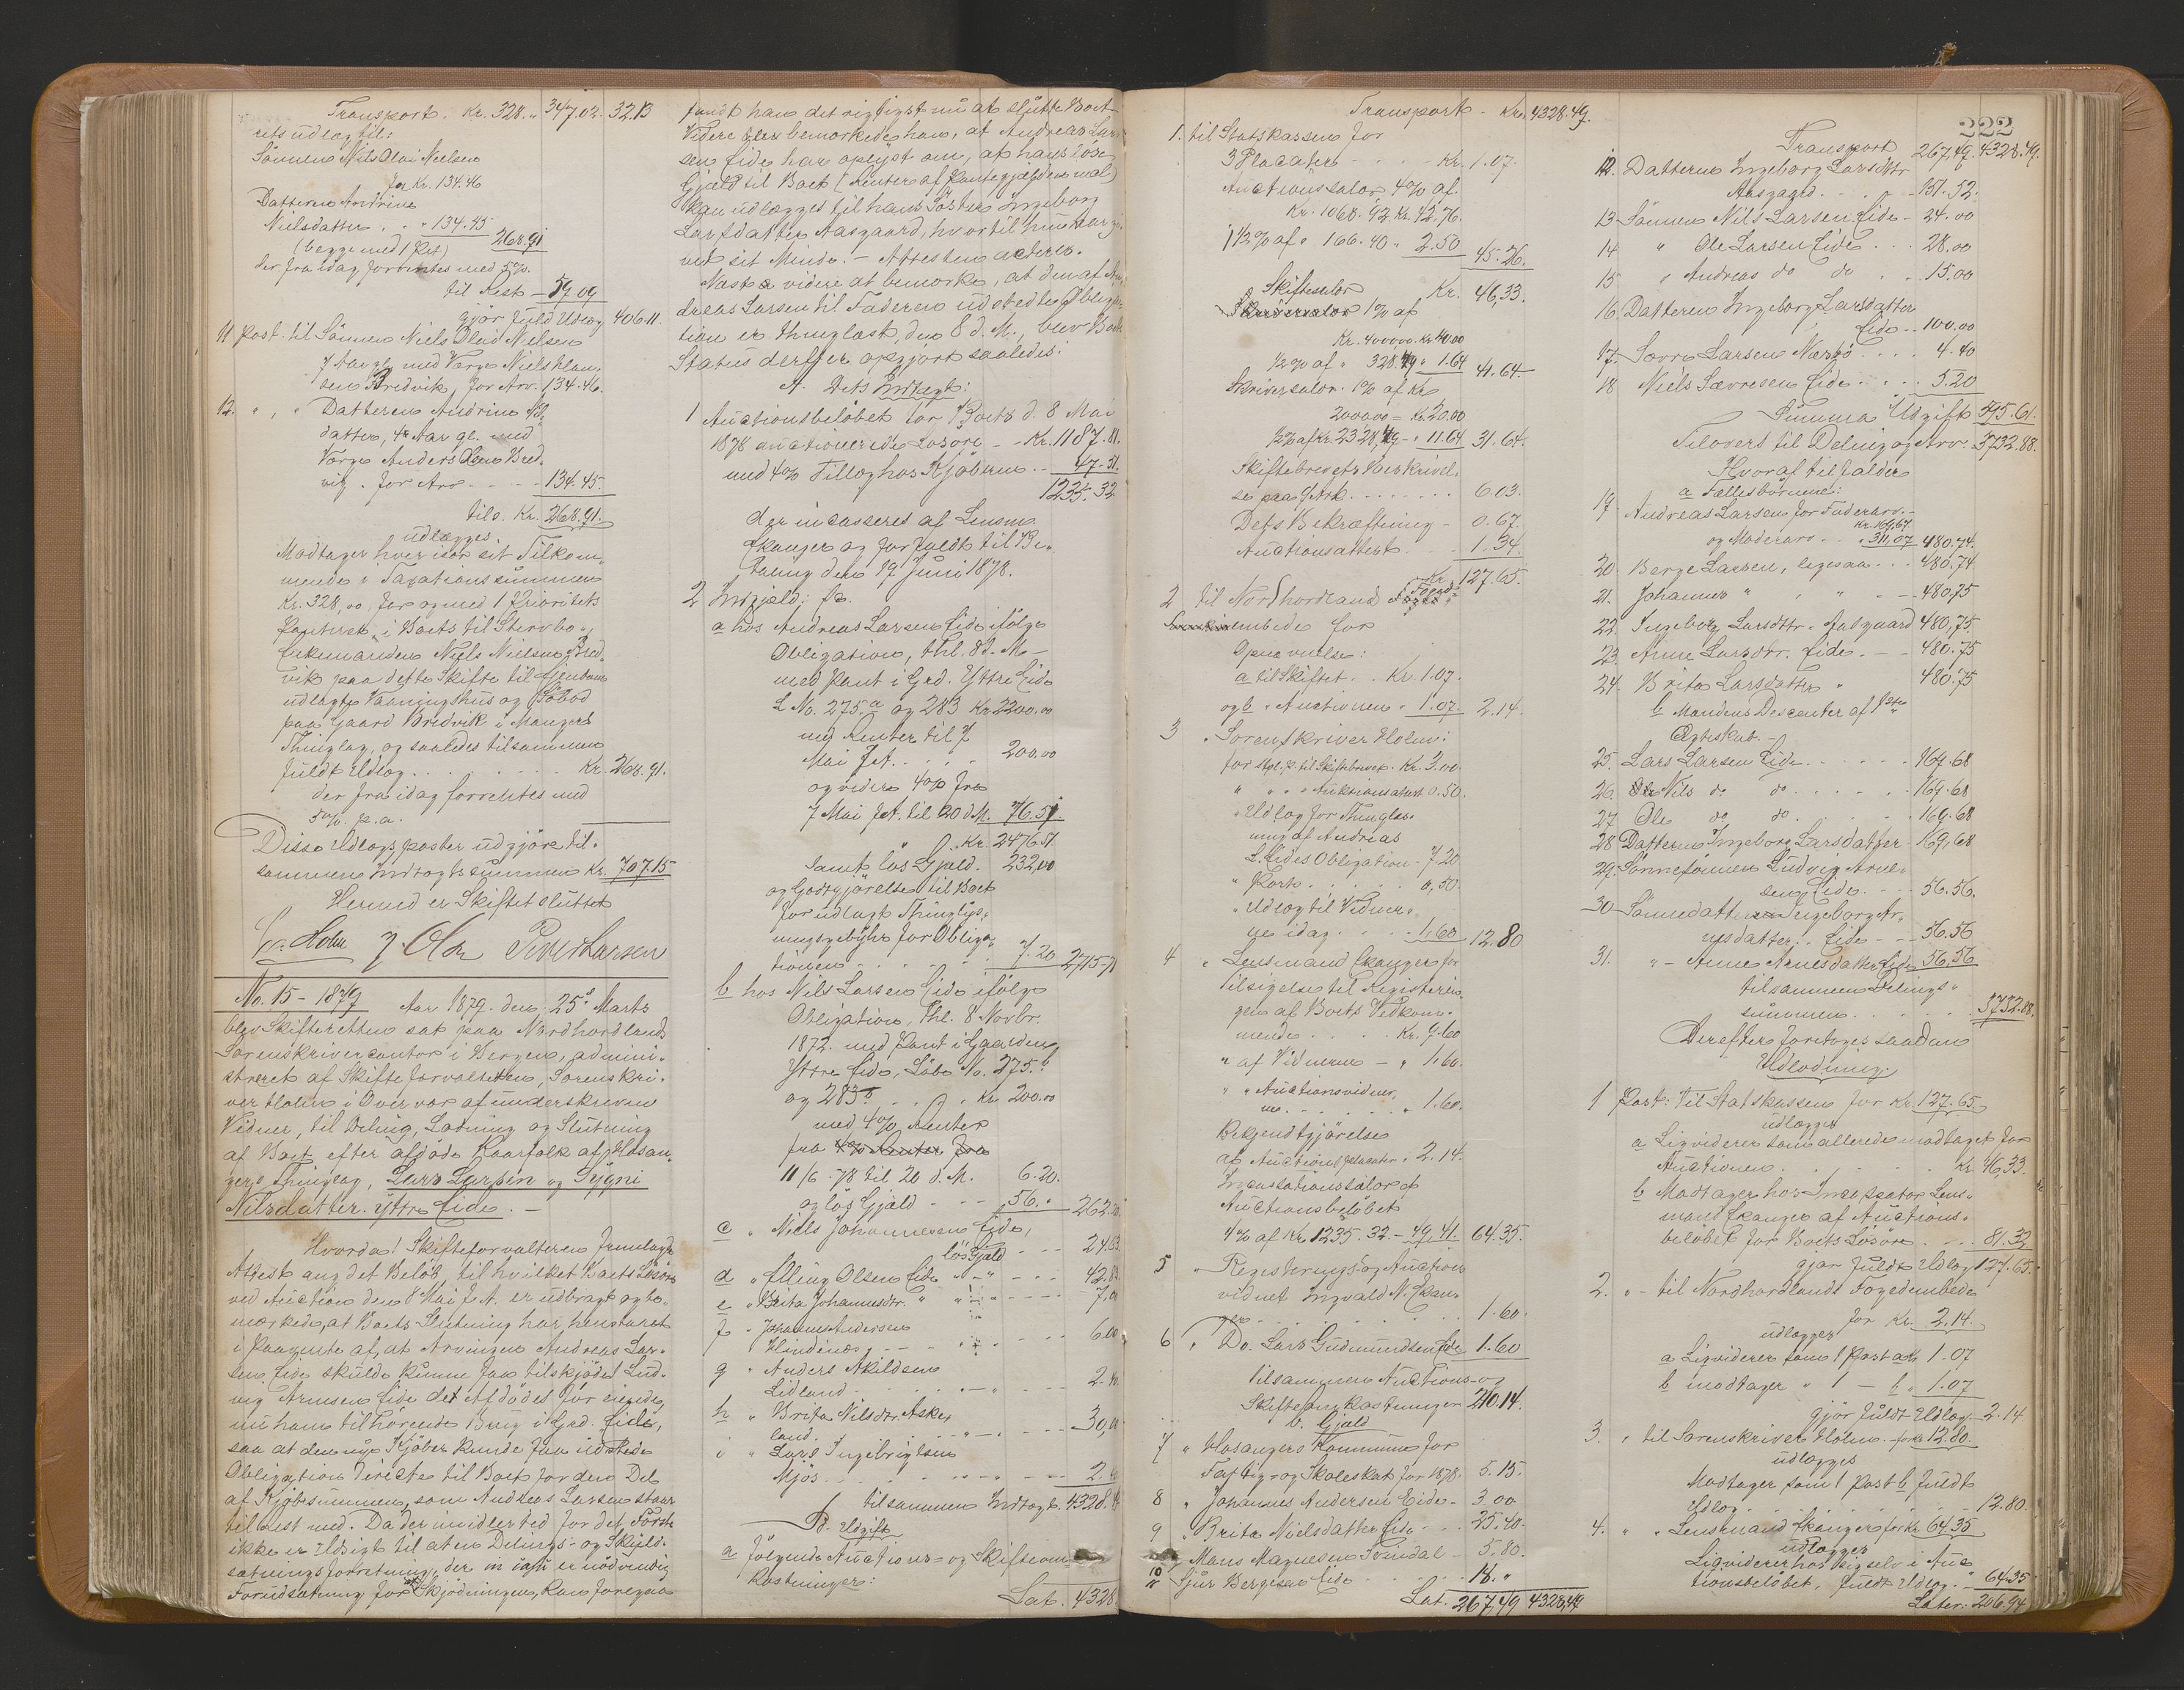 Transport. Kr. 328. „ 347.02. 32.13
rets udlagt til:
Sönnen Nils Olai Nielsen
for Kr. 134.46
Datteren Andrine
Nielsdatter . . „ 134.45
268.91
(begge med 1 Pret)
der fra idag forrentes med 5%.
til Rest – 59 09
gjör fuld Udlæg 406.11.
11 Post. til Sönnen Niels Olai Nielsen
7 Aar gl. med Værge Niels Han-
sen Bredvik, for Arv. 134.46.
12. „ „ Datteren Andrine Nls
datter, 4 Aar gl. med
Værge Anders Olsen Bred-
vig . for Arv – – – – 134.45.
tils. Kr. 268.91.
udlægges
Modtager hver især sit Tilkom-
mende i Taxationssummen
Kr. 328,00, for og med 1 Prioritets
Panteret i Boets til Stervbo-
Enkemanden Niels Nielsen Bred-
vik paa dette Skifte til Eiendom
udlagte Vaaningshus og Söbod
paa Gaard Bredvik i Mangers
Thinglag, og saaledes tilsammen
fuldt Udlæg . . . . . . . Kr. 268.91.
der fra idag forrentes med
5%. p.a.
Disse Udlægsposter udgjöre til-
sammen Indtægtssummen Kr. 707.15
Hermed er Skiftet sluttet
Holm J. Olsen Peder Larsen
No. 15 – 1879 Aar 1879. den 25de Marts
blev Skifteretten sat paa Nordhordlands
Sorenskrivercontor i Bergen, admini-
streret af Skifteforvalteren, Sorenskri-
ver Holm i Overvær af underskrevne
Vidner, til Deling, Lodning og Slutning
af Boet efter afdöde Kaarfolk af Hosan-
gers Thinglag, Lars Larsen og Sygni
Nilsdatter Yttre Eide. –
Hvorda! Skifteforvalteren fremlagde
Attest ang det Belöb, til hvilket Boets Lösöre
ved Auction den 8 Mai f. A. er udbragt og be-
mærkede, at Boets Slutning har henstaaet
i Paavente af, at Arvingen Andreas Lar-
sen Eide skulde kunne faa tilskjödet Lud-
vig Arnesen Eide det Afdödes för eiende,
nu ham tilhörende Brug i Grd. Eide,
saa at den nye Kjöber kunde faa udstede
Obligation directe til Boet for den Del
af Kjöbesummen, som Andreas Larsen staar
til Rest med. Da der imidlertid for det Förste
ikke er Udsigt til at en Delings- og Skyld-
sætningsforretning, der er nödvendig
Forudsætning for Skjödningen, kan foregaa
fandt han det rigtigst nu at slutte Boet
Videre bemærkede han, at Andreas Lar-
sen Eide har oplyst om, at hans löse
Gjæld til Boet (Renter af Pantegjælden incl)
kan udlægges til hans Söster Ingeborg
Larsdatter Aasgaard, hvortil hun har gi-
vet sit Minde. – Attesten acteres.
Næst a videre at bemærke, at den af An-
dreas Larsen til Faderen udstedte Obliga-
tion er thinglæst den 8 d. M., blev Boets
Status derefter opgjort saaledes:
A. Dets Indtægt:
1 Auctionsbelöbet for Boets d. 8 Mai
1878 auctionerede Lösöre – – Kr. 1187.81.
med 4% Tillæg hos Kjöberne – – 47.51.
1235.32
der incasseres af Lensm.
Skanger og forfaldt til Be-
taling den 19 Juni 1878.
2 Indgjæld: fr.
a hos Andreas Larsen Eide ifölge
Obligation, thl. 8 d. M –
med Pant i Grd. Yttre Eide
L No. 275.a og 283 Kr 2200.00
med Renter til 7
Mai f A. . . . 200.00
og videre 4% fra
7 Mai f A. til 20 d. M. 76.51
Kr 2476.51
samt lös Gjæld. 232,00
og Godtgjörelse til Boet
for udlagt Thinglys-
ningsgebyhr for Obliga-
tionen . . . . . . . 7.20 2715.71
b hos Nils Larsen Eide ifölge
Obligation, thl. 8 Novbr.
1872. med Pant i Gaarden
Yttre Eide, Löbe No. 275.b
og 283b . . . Kr. 200.00
med 4% Renter
fra 4% Renter fra
11/6 – 78 til 20 d. M. 6.20.
og lös Gjæld – – – 56. „ 262.20
c „ Niels Johannesen Eide,
lös Gjæld – – – 24.83
d „ Elling Olsen Eide „ – „ – – – 42.82
e „ Brita Johannesdtr. „ „ – „ – – – – 7,00
f „ Johannes Andersen
Hindenes, – – „ – „ – – – 6.00
g „ Anders Akildsen
Lidland . . . . . „ – „ – – – 2.40
h „ Brita Nilsdtr. Aske-
land. . . . . . . „ – „ – – – 30,00
i „ Lars Ingebrigtsen
Mjös . . . . . „ – „ – – – 2.40
tilsammen Indtægt. 4328.49
B. Udgift
a Fölgende Auctions- og Skifteom-
kostninger:
Lat. 4328
Transport – Kr. 4328.49.
1. til Statskassen for
3 Placater – – – – Kr. 1.07.
Auctionssalær 4% af.
Kr. 1068. 92. Kr. 42,76.
1 1/2% af „ 166.40 „ 2.50 45.26.
Kr. 46,33.
„ Skiftesalær
Skriversalær 1% af
Kr. 4000.00. Kr 40.00
1/2% af „ 328.49 „ 1.64 41.64.
Skriversalær. 1% af Kr
2000.00 = Kr. 20.00
1/2% af Kr. 2328,49 – „ 11.64 31.64.
Skiftebrevets Beskrivel-
se paa 9 Ark . . . . . . . . 6.03.
Dets Bekræftning – 0.67.
Auctionsattest . . 1.34.
Kr. 127.65.
2 til Nordhordland Foged-
embede for
Opnævnelse:
a til Skiftet . . Kr. 1.07.
og b „ Auctionen „ 1.07. 2.14.
3 „ Sorenskriver Holm:
for stpl. p. til Skiftebrevet. Kr. 3.00.
„ „ „ „ Auktionsattest 0.50.
„ Udlæg for Thinglæs-
ning af Andreas
L. Eides Obligation – 7.20
„ Porto . . . . . . . 0,50.
„ Udlæg til Vidner-
ne idag. . . . . 1,60 12.80
4 „ Lensmand Skanger for
Tilsigelse til Registerin-
gen af Boets Vedkom-
mende . . . . . Kr. 9.60
„ af Vidnerne – „ 1.60.
„ „ Auctionsvidner-
ne. . . . . . . „ 1.60.
Bekjendtgjörelse
af Auctionsplacater „ 2.14.
Incassationssalær af
Auctionsbelöbet
4% af Kr. 1235.32. – 49,41. 64.35.
5 „ Registrerings- og Auctions-
vidnet Ingvald N. Skan-
ger . . . . . . . . . . . . 1.60.
6 „ Do. Lars Gudmundsen Eide 1.60
tilsammen Auctions- og
Skifteomkostninger 210.14.
b. Gjæld
7 „ Hosangers Kommune for
Fattig- og Skoleskat for 1878. 5.15.
8 „ Johannes Andersen Eide – 3.00
9 „ Brita Nielsdatter Eide . . . 25.40.
10 „ Mons Magnesen Tvindal – 5.80.
11 „ Sjur Bergesen Eide . . . . . 18. „
Lat. 267,49 4328,49
222
Transport 267,49. 4328.49.
12. Datteren Ingeborg Larsdttr
Aasgaard. . . . . . – 151.52.
13 Sönnen Nils Larsen Eide – 24.00
14 „ Ole Larsen Eide . . . 28.00
15 „ Andreas do do . . 15.00
16. Datteren Ingeborg Larsdatter
Eide . . 100.00
17. Sævre Larsen Nærø . . . . 4.40
18 Niels Sævresen Eide . . . . 5.20
Summa Udgift 595.61.
Tilovers til Deling og Arv. 3732.88.
Hvoraf tilfalder
a Fællesbörnene:
19 Andreas Larsen for Faderarv. –
Kr. 169,67.
og Moderarv. . . „ 311,07 480.74.
20. Berge Larsen, ligesaa . . . 480,74
21. Johannes „ „ „ – – 480,75
22. Ingeborg Larsdttr. Aasgaard 480,75.
23. Anne Larsdtr. Eide. – – 480.75
24. Brita Larsdatter „ 480.75
b Mandens Descenter af 1ste
Ægteskab. –
25. Lars Larsen Eide . . . . . 169.68
26. Nils do do. . . . . . 169.68
27. Ole do do. . . . . . 169.68
28 Datteren Ingeborg Larsdatter . 169,68
29. Sönnesönnen Ludvig Arne-
sen Eide. . . . 56.56.
30 Sönnedatteren Ingeborg Ar-
nesdatter. Eide – – 56.56
31. „ – Anne Arnesdatter Eide 56,56
tilsammen Delings-
summen . . . . . . . . 3732.88.
Derefter foretoges saadan
Udlodning.
1 Post: Til Statskassen for Kr. 127.65.
udlægges
a Liqviderer som allerede modtaget for
Auctionen . . . . . . . Kr. 46,33.
b Modtager hos Incassator Lens-
mand Skanger af Auctions-
belöbet for Boets Lösöre . . . 81.32
gjör fuldt Udlæg 127.65.
2. „ – til Nordhordlands Fogedembede
for Kr. 2.14.
udlægges
a Liqviderer som 1 Post a Kr 1.07
b modtager „ 1 – b „ 1.07
gjör fuldt Udlæg – 2.14.
3. „ til Sorenskriver Holm – for Kr 12.80.
udlægges
Modtager som 1 Post b fuldt
Udlæg . . . . . . . . . . . 12.80.
4. „ „ Lensmand Skanger for Kr 64.35
udlægges
Liqviderer hos sig selv i Auc-
tionsbelöbet, fuldt Udlæg . . „ 64.35
Later: 206.94